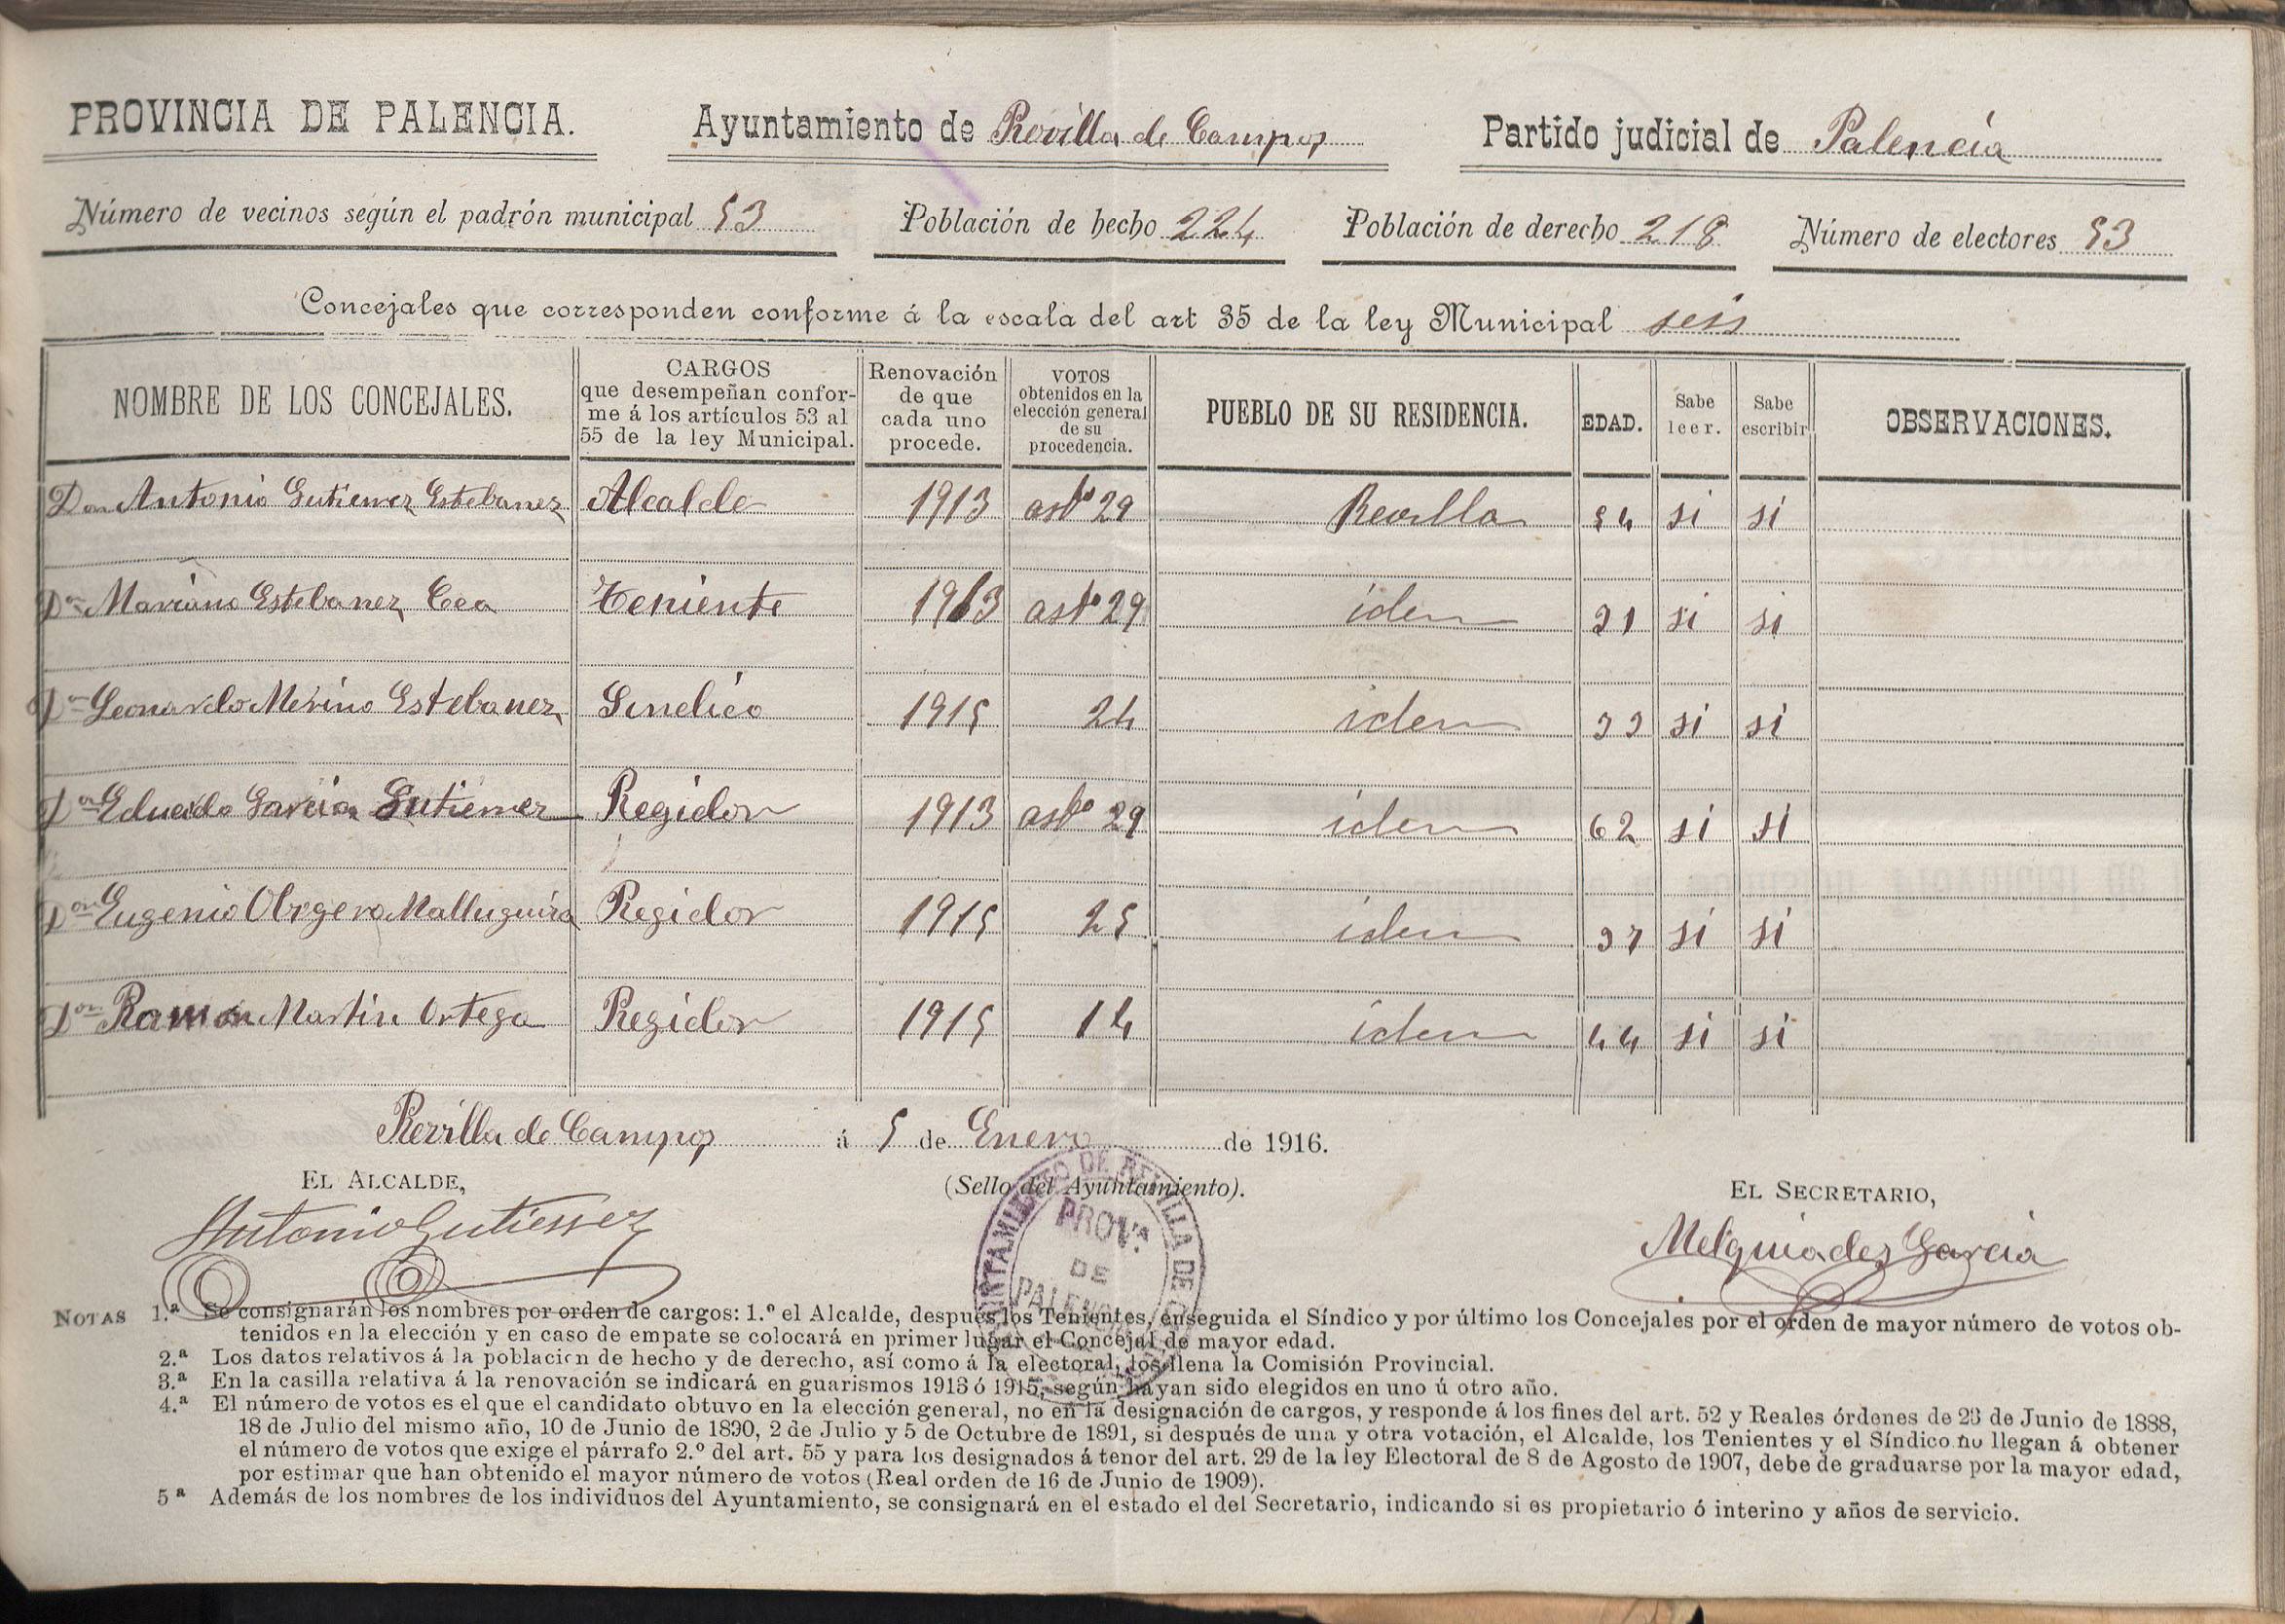 PROVINCIA DE PALENCIA. Ayuntamiento de Revilla de Campos Partido judicial de Palencia
Número de vecinos según el padrón municipal 53 Población de hecho 224 Población de derecho 218 Número de electores 53
Concejales que corresponden conforme á la escala del art 35 de la ley Municipal seis
NOMBRE DE LOS CONCEJALES.
CARGOS
que desempeñan confor-
me á los artículos 53 al
55 de la ley Municipal.
Renovación
de que
cada uno
procede.
VOTOS
obtenidos en la
elección general
de su
procedencia.
PUEBLO DE SU RESIDENCIA.
EDAD.
Sabe
leer.
Sabe
escribir
OBSERVACIONES.
Don Antonio Gutierrez Estebanez Alcalde 1913 artº 29 Revilla 54 si si
Don Mariano Estebanez Cea Teniente 1913 artº 29 idem 31 si si
Don Leonardo Merino Estebanez Sindico 1915 24 idem 33 si si
Don Eduardo Garcia Gutierrez Regidor 1913 artº 29 idem 62 si si
Don Eugenio Regidor 1915 25 idem 37 si si
Don Ramon Martin Ortega Regidor 1915 14 idem 44 si si
Revilla de Campos á 5 de Enero de 1916.
EL ALCALDE, (Sello del Ayuntamiento). EL SECRETARIO,
Antonio Gutierrez Melquiades Garcia
AYUNTAMIENTO DE REVILLA DE
PROVª
DE
PALENCIA
NOTAS 1.ª Se consignarán los nombres por orden de cargos: 1.º el Alcalde, después los Tenientes, enseguida el Síndico y por último los Concejales por el orden de mayor número de votos ob-
tenidos en la elección y en caso de empate se colocará en primer lugar el Concejal de mayor edad.
2.ª Los datos relativos á la población de hecho y de derecho, así como á la electoral, los llena la Comisión Provincial.
3.ª En la casilla relativa á la renovación se indicará en guarismos 1913 ó 1915, según hayan sido elegidos en uno ú otro año.
4.ª El número de votos es el que el candidato obtuvo en la elección general, no en la designación de cargos, y responde á los fines del art. 52 y Reales órdenes de 23 de Junio de 1888,
18 de Julio del mismo año, 10 de Junio de 1890, 2 de Julio y 5 de Octubre de 1891, si después de una y otra votación, el Alcalde, los Tenientes y el Síndico no llegan á obtener
el número de votos que exige el párrafo 2.º del art. 55 y para los designados á tenor del art. 29 de la ley Electoral de 8 de Agosto de 1907, debe de graduarse por la mayor edad,
por estimar que han obtenido el mayor número de votos (Real orden de 16 de Junio de 1909).
5ª Además de los nombres de los individuos del Ayuntamiento, se consignará en el estado el del Secretario, indicando si es propietario ó interino y años de servicio.